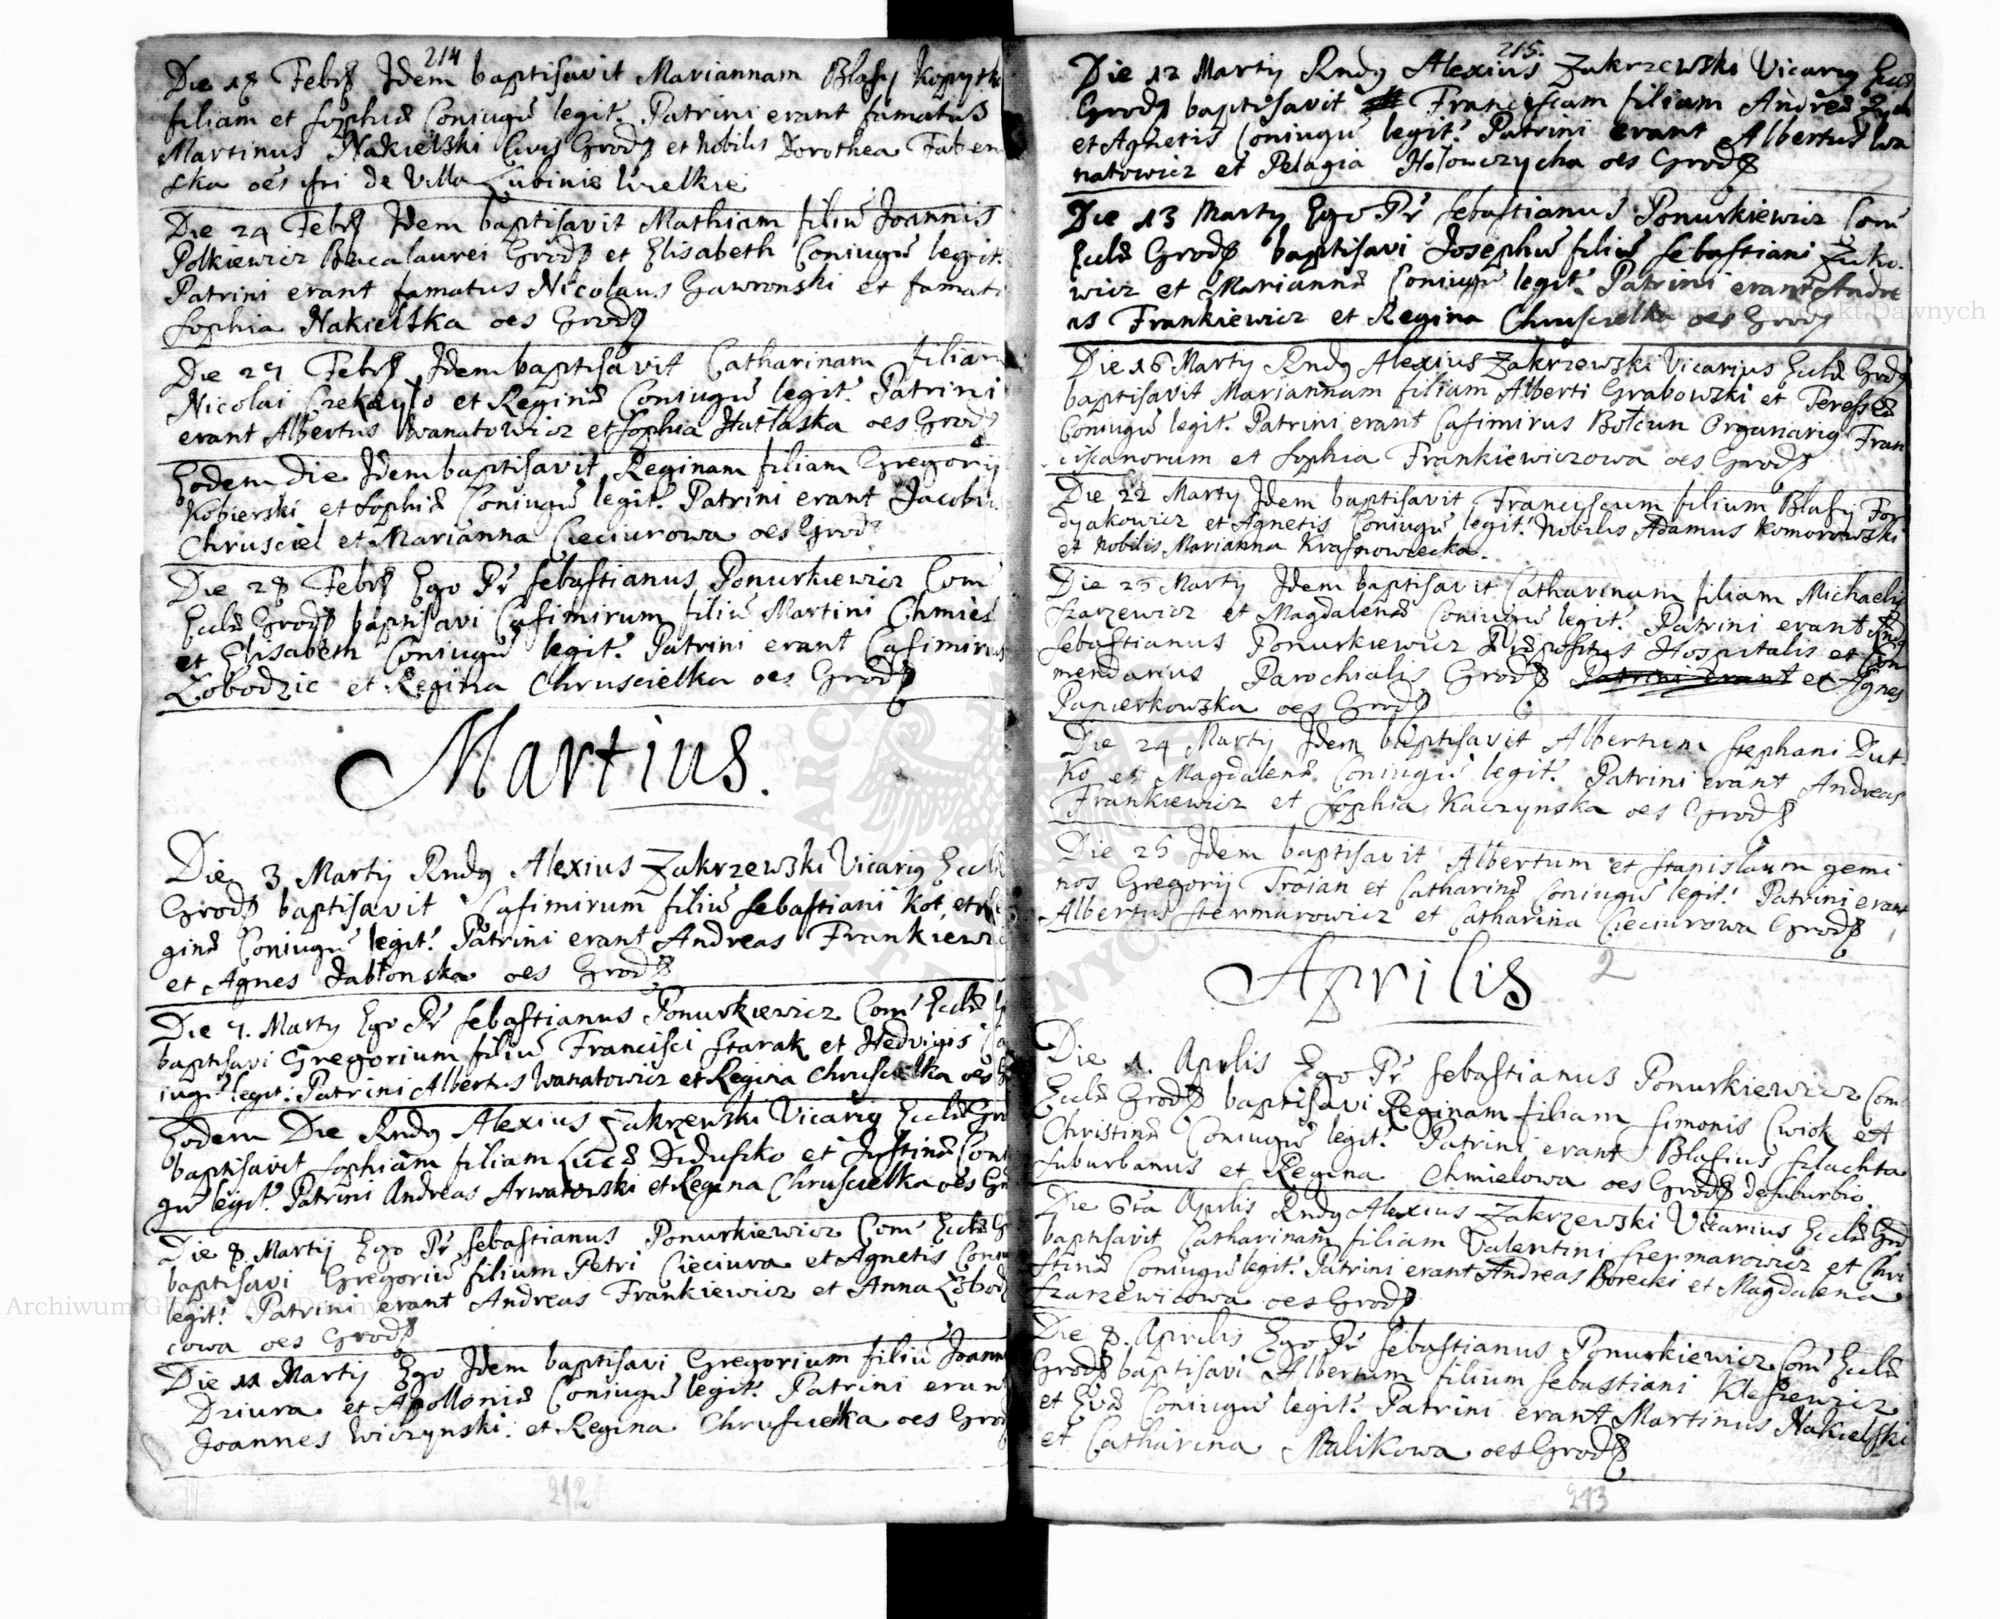 214
Die 18 Febrs Idem baptisavit Mariannam Blasij
filiam et Sophiæ Coniugũ legit: Patrini erant famatus
Martinus Nakielski Civis Grod: et Nobilis Dorothea
ska oes de Villa Lubinie Wielkie
Die 24 Febrs Idem baptisavit Mathiam filiũ Joannis
Polkiewicz Bacalaurei Grod: et Elisabeth Coniugũ legit:
Patrini erant famatus Nicolaus Gawronski et famat
Sophia Nakielska oes Grod:
Die 27 Febrs Idem baptisavit Catharinam filiam
Nicolai Czekayło et Reginæ Coniugũ legit: Patrini
erant Albertus Iwanatowicz et Sophia Hutłaska oes Grod:
Eodem Die Idem baptisavit Reginam filiam Gregorij
Kobierski et Sophiæ Coniugũ legit: Patrini erant Jacobus
Chrusciel et Marianna Cieciurowa oes Grod:
Die 28 Febrs Ego Pr Sebastianus Ponurkiewicz Com
Eccliæ Grod: baptisavi Casimirum filiũ Martini Chmiel
et Elisabeth Coniugũ legit: Patrini erant Casimirus
Łobodzic et Regina Chruscielka oes Grod:
Martius.
Die 3 Martij Rndg Alexius Zakrzewski Vicarig Eccl
Grod: baptisavit Casimirum filiũ Sebastiani Kot, et Re
ginæ Coniugũ legit: Patrini erant Andreas Frankiewic
et Agnes Jabłonska oes Grod:
Die 7. Martij Ego Pr Sebastianus Ponurkiewicz Com Eccliæ
baptisavi Gregorium filiũ Francisci Starak et Hedvigis Co
iugũ legit: Patrini Albertus Iwanatowicz et Regina Chruscielka oes
Eodem Die Rndg Alexius Zakrzewski Vicarig Eccliæ Gro
baptisavit Sophiam filiam Lucæ Diduszko et Justinæ Coni
gũ legit: Patrini Andreas Arwatowski et Regina Chruscielka oes Gr
Die 8 Martij Ego Pr Sebastianus Ponurkiewicz Com Eccliæ G
baptisavi Gregoriũ filium Petri Cieciura et Agnetis Coniu
legit: Patrini erant Andreas Frankiewicz et Anna Łobod
cowa oes Grod:
Die 11 Martij Ego Idem baptisavi Gregorium filiũ Joann
Dziura et Apolloniæ Coniugũ legit: Patrini erant
Joannes Wiczynski: et Regina Chruscielka oes Grod
212
215.
Die 12 Martij Rndg Alexius Zakrzewski Vicarig Eccl
Grod: baptisavit Franciscam filiam Andreæ
et Agnetis Coniugũ legit: Patrini erant Albertus Iwa
natowicz et Pelagia Hołowczycha oes Grod:
Die 13 Martij Ego Pr Sebastianus Ponurkiewicz Com
Eccliæ Grod: baptisavi Josephũ filiũ Sebastiani Zuko
wicz et Mariannæ Coniugũ legit: Patrini erant Andre
as Frankiewicz et Regina Chruscielka oes Grod:
Die 16 Martij Rndg Alexius Zakrzewski Vicarius Eccliæ Grod:
baptisavit Mariannam filiam Alberti Grabowzki et Teressæ
Coniugũ legit: Patrini erant Casimirus Bołcun Organarig Fran
ciscanorum et Sophia Frankiewiczowa oes Grod:
Die 22 Martij Idem baptisavit Franciscum filium Blasij For
dyakowicz et Agnetis Coniugũ legit: Nobilis Adamus Komorowski
et Nobilis Marianna Krasnowiecka.
Die 23 Martij Idem baptisavit Catharinam filiam Michaelis
Szarzewicz et Magdalenæ Coniugũ legit: Patrini erant Rndg
Sebastianus Ponurkiewicz Præpositus Hospitalis et Com
mendarius Parochialis Grod: Patrini erant et Agnes
Papierkowzka oes Grod:
Die 24 Martij Idem baptisavit Albertum Stephani Dut
ko et Magdalenæ Coniugũ legit: Patrini erant Andreas
Frankiewicz et Sophia Kaczynska oes Grod:
Die 25 Idem baptisavit Albertum et Stanislaum gemi
nos Gregorij Troian et Catharinæ Coniugũ legit: Patrini erant
Albertus Stermarowicz et Catharina Cieciurowa Grod:
Aprilis
2
Die 1. Aprilis Ego Pr Sebastianus Ponurkiewicz Com
Eccliæ Grod: baptisavi Reginam filiam Simonis Cwiok et
Christinæ Coniugũ legit: Patrini erant Blasius Szlachta
Suburbanus et Regina Chmielowa oes Grod: de Suburbio
Die 6ta Aprilis Rndg Alexius Zakrzewski Vicarius Eccliæ Grod
baptisavit Catharinam filiam Valentini Stermarowicz et Chri
stinæ Coniugũ legit: Patrini erant Andreas Borecki et Magdalena
Szarzewicowa oes Grod:
Die 8. Aprilis Ego Pr Sebastianus Ponurkiewicz Com Eccliæ
Grod: baptisavi Albertum filium Sebastiani Kleszewicz
et Evæ Coniugũ legit: Patrini erant Martinus Nakielski
et Catharina Malikowa oes Grod:
213
Archiwum Główne Akt Dawnych
Archiwum Główne Akt Dawnych